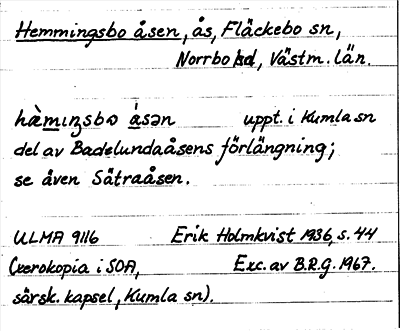 Hemmingsbo åsen, ås, Fläckebo sn,
Norrbo hd, Västm. län.
hàmıŋsbo ásən uppt. i Kumla sn
del av Badelundaåsens förlängning;
se även Sätraåsen.
ULMA 9116 Erik Holmkvist 1936, s. 44
(Xerokopia i SOA, Exc. av B.R.g. 1967.
särsk. kapsel, Kumla sn).